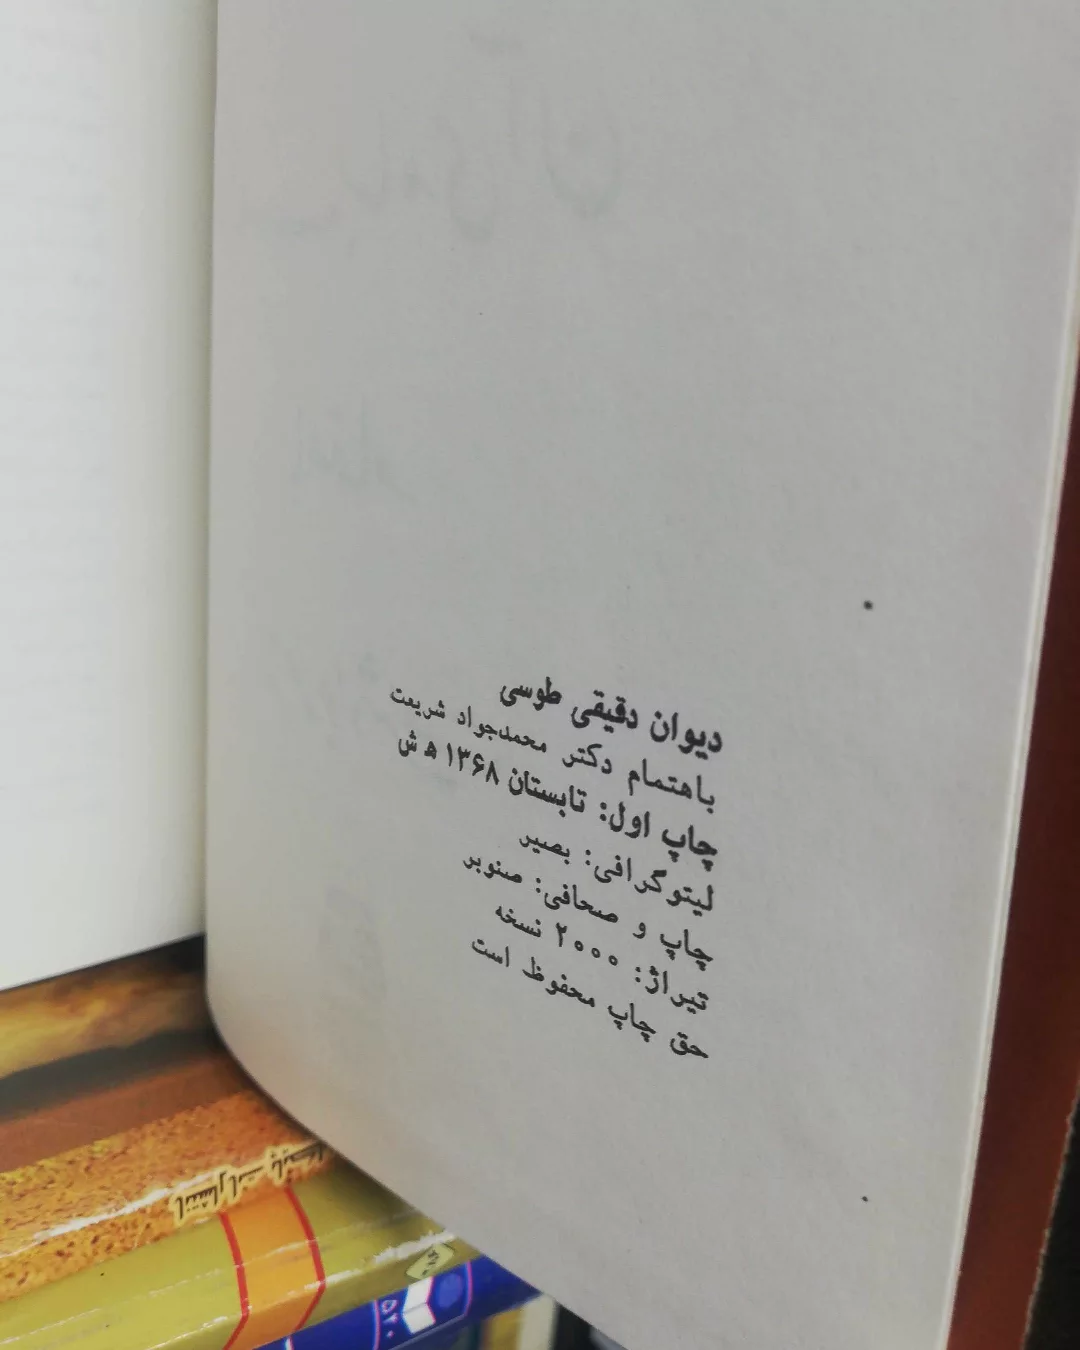 دیوان دقیقی طوسی
باهتمام دکتر محمدجواد شریعت
چاپ اول: تابستان ۱۳۶۸ ه‍ ش
لیتوگرافی: بصیر
چاپ و صحافی: صنوبر
تیراژ: ۲۰۰۰ نسخه
حق چاپ محفوظ است
انتشارات
۵۲۰